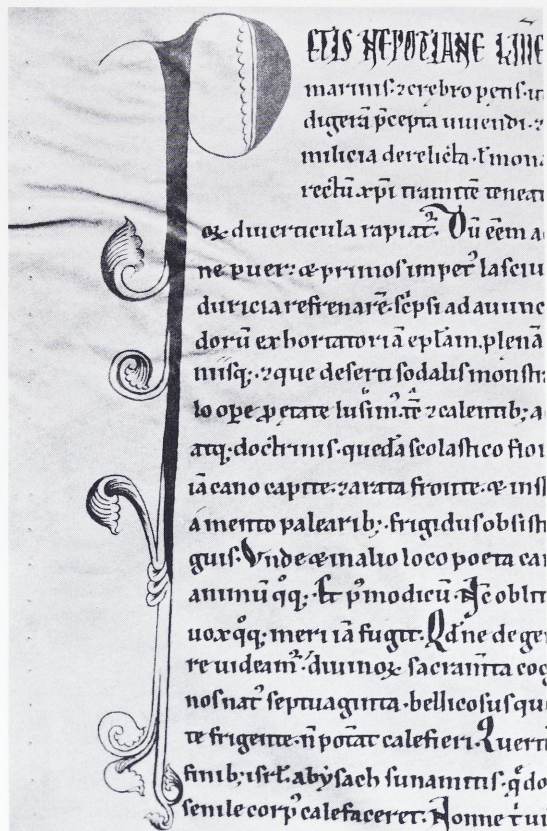 PETIS NEPOTIANE
marinis: ⁊ crebro petis. ut
digerā p̄cepta uiuendi. ⁊
milicia derelicta. ł mona
rectū xp̄i tramitē teneat
ꝝ diuerticula rapiat᷑. Dū eēm a
ne puer: & primos impet᷑ lasciu
duricia refrenarē. scēpsi ad auunc
dorū exhortatoriā ep̄tam. plenā
niisq; ⁊ que deserti sodalis monstr
lo ope ꝓ etate lusim᷑. ⁊ calentib; a
atq; doctrinis. quedā scolastico flor
iā cano capite. ⁊ arata fronte. & inst
a mento palearib; frigidus obsist
guis. Vnde & in alio loco poeta can
animū qͦq;. Et p᷑ modicū. Nc̄ oblit
uox qͦq; meri iā fugit. Qd̄ ne de gen
re uideam᷑. diuinoꝝ sacram̄ta cog
nos nat᷑ septuaginta. bellicosus qu
te frigente. n̄ potat calefieri. Querit
finib; isrł. abysach sunamitis. q̄ do
senile corp᷑ calefaceret. Nonne t ui